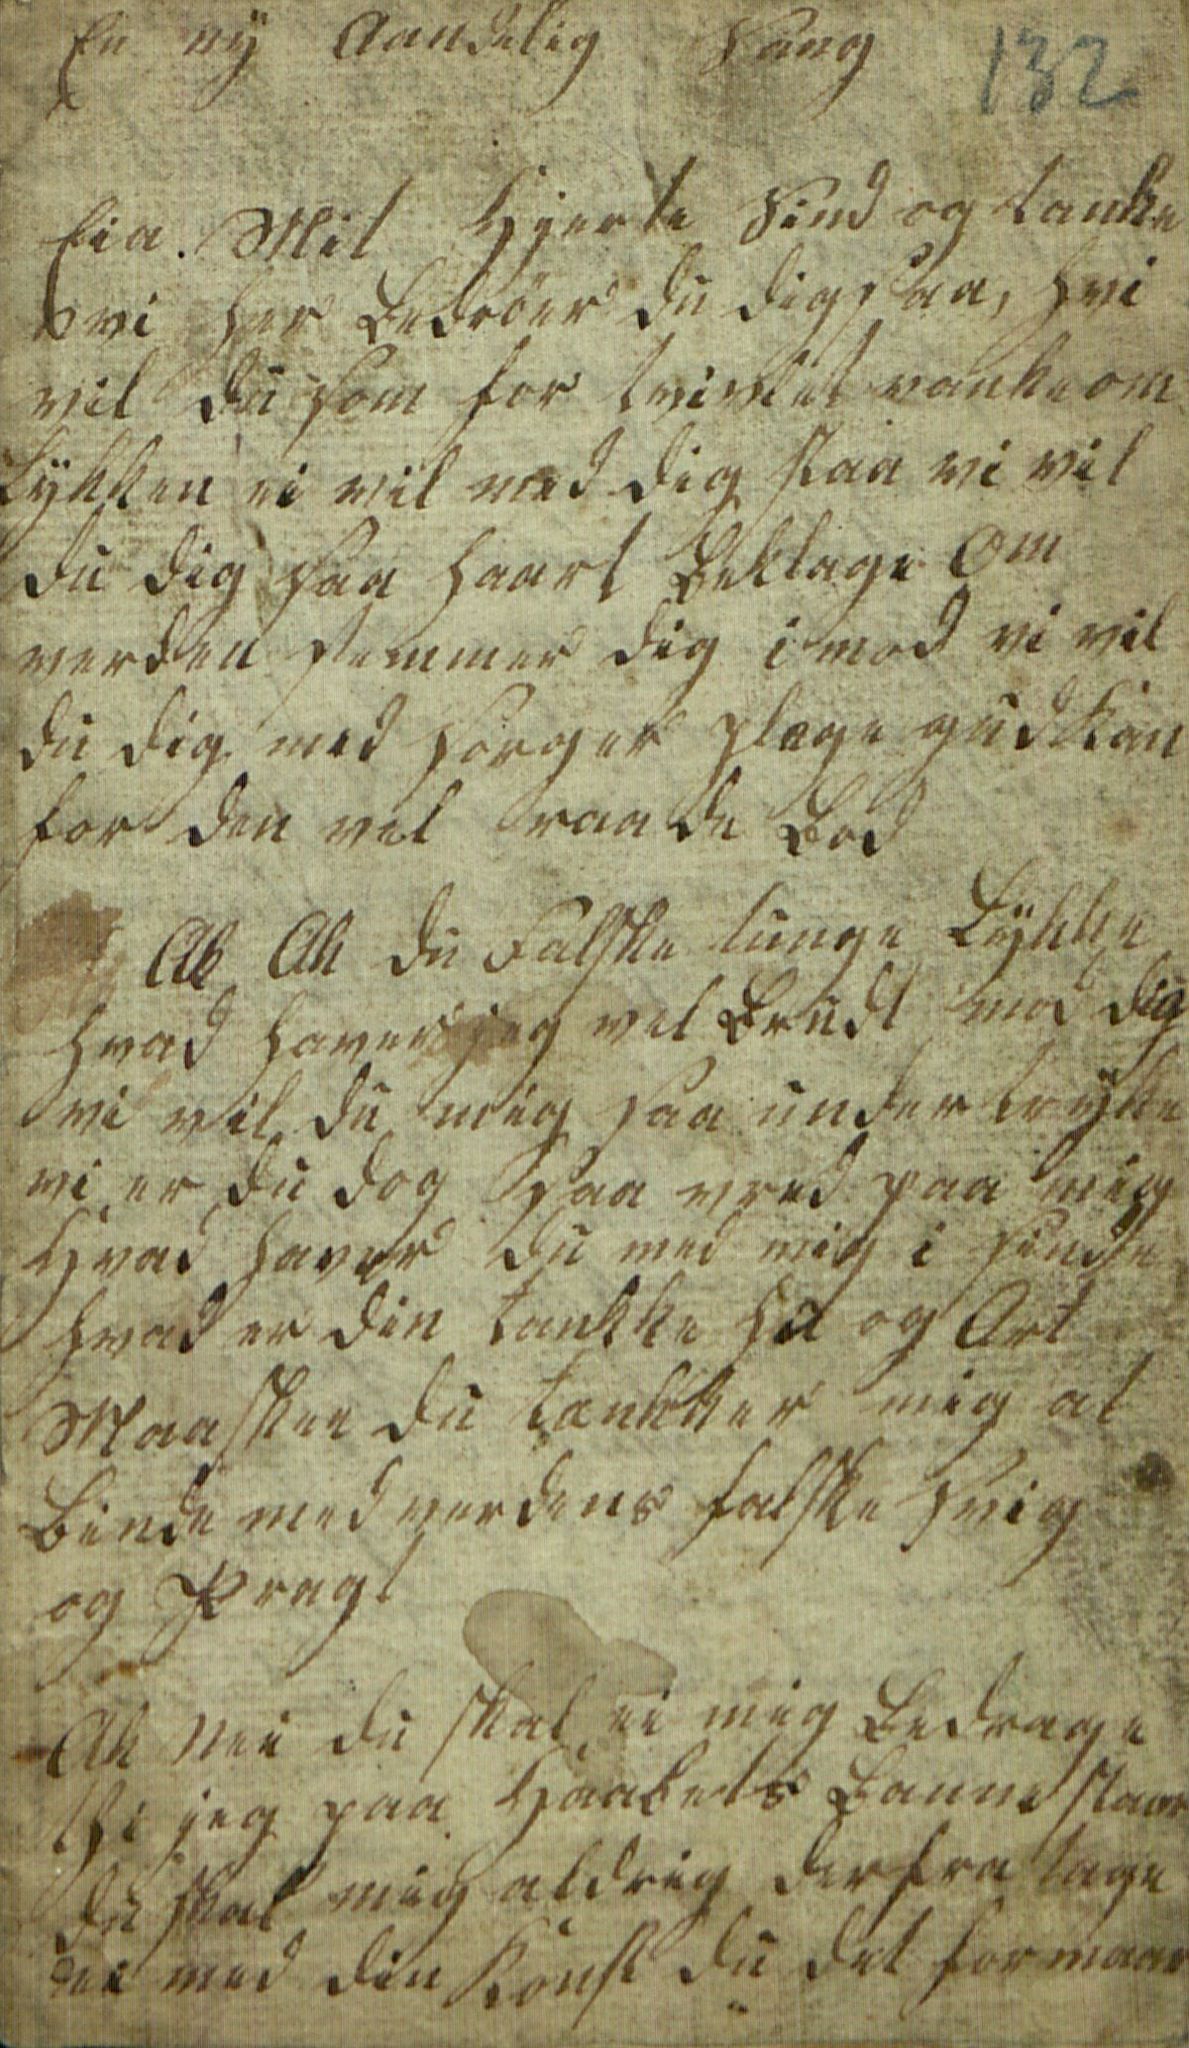 En nÿ Aandelig Sang 132
Eia. Mit Hjerte Sind og tanke
hvi har Bedröver du dig saa, hvi
vil du som for tvivlet vanke om
Lÿkken ei vil med dig staa vi vil
du dig saa haart Beklage Om
verden stemmer dig imod vi vil
du dig med sorger plage gud kan
for den vel raade Bod
Ak Ak du Falske tunge Lÿkke
hvad haver jeg vel Brudt mod dig
vi vil du mig saa undertrÿkke
vi er du dog saa vred paa mig
Hvad haver du med mig i sinde
hvad er din tankke og Art
Maaskee du tænkker mig at
Binde med verdens falske svig
og Pragt
Ak Nei du skal ei mig Bedrage
thi jeg paa Haabets Banne staar
du skal mig aldrig derfra tage
ei med din Konst du det formaar